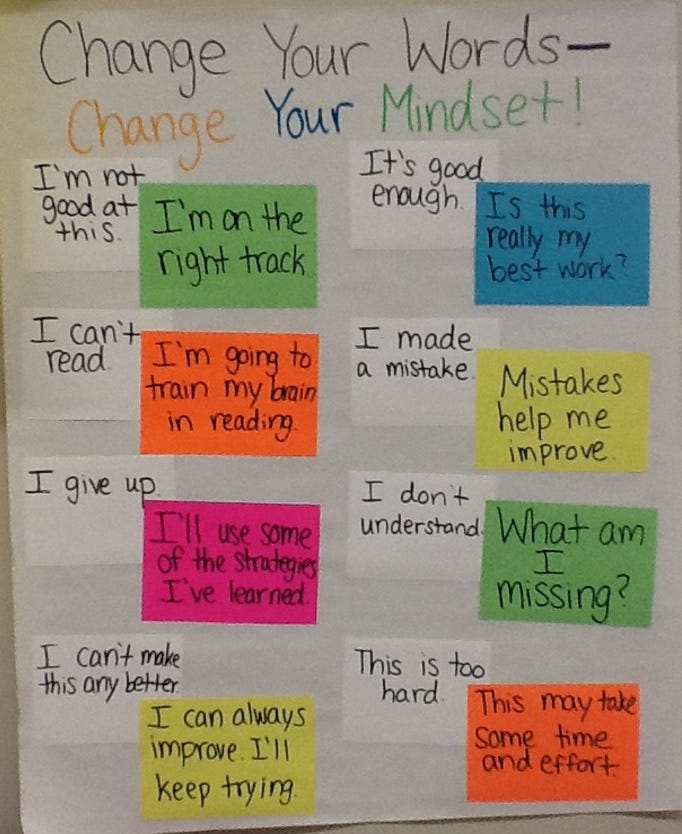 Change Your Words—
Change Your Mindset!
I'm not
good at
this.
I'm on the
right track.
It's good
enough.
Is this
really my
best work?
I can't
read.
I'm going to
train my brain
in reading.
I made
a mistake.
Mistakes
help me
improve.
I give up.
I'll use some
of the strategies
I've learned.
I don't
understand.
What am
I
missing?
I can't make
this any better.
I can always
improve. I'll
keep trying.
This is too
hard.
This may take
some time
and effort.